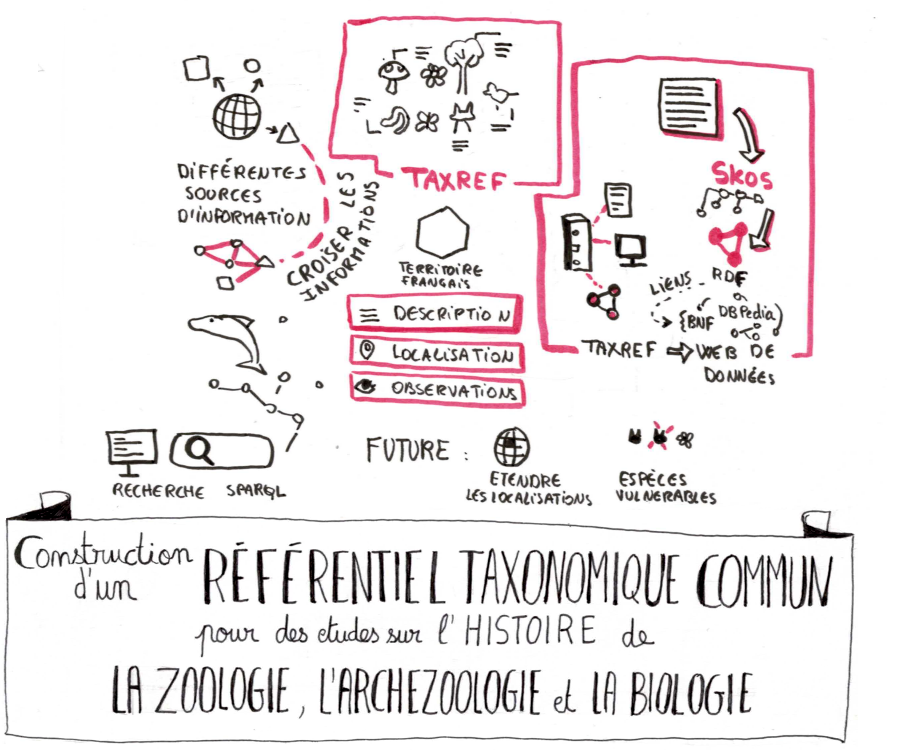 DIFFÉRENTES
SOURCES
D'INFORMATION
CROISER LES
INFORMATIONS
TAXREF
TERRITOIRE
FRANÇAIS
DESCRIPTION
LOCALISATION
OBSERVATIONS
SKOS
RDF
LIENS
{BNF DBPedia)
TAXREF ⇒ WEB DE
DONNÉES
RECHERCHE SPARQL
FUTURE :
ETENDRE
LES LOCALISATIONS
ESPÈCES
VULNERABLES
Construction
d'un RÉFÉRENTIEL TAXONOMIQUE COMMUN
pour des etudes sur l'HISTOIRE de
LA ZOOLOGIE, L'ARCHEZOOLOGIE et LA BIOLOGIE